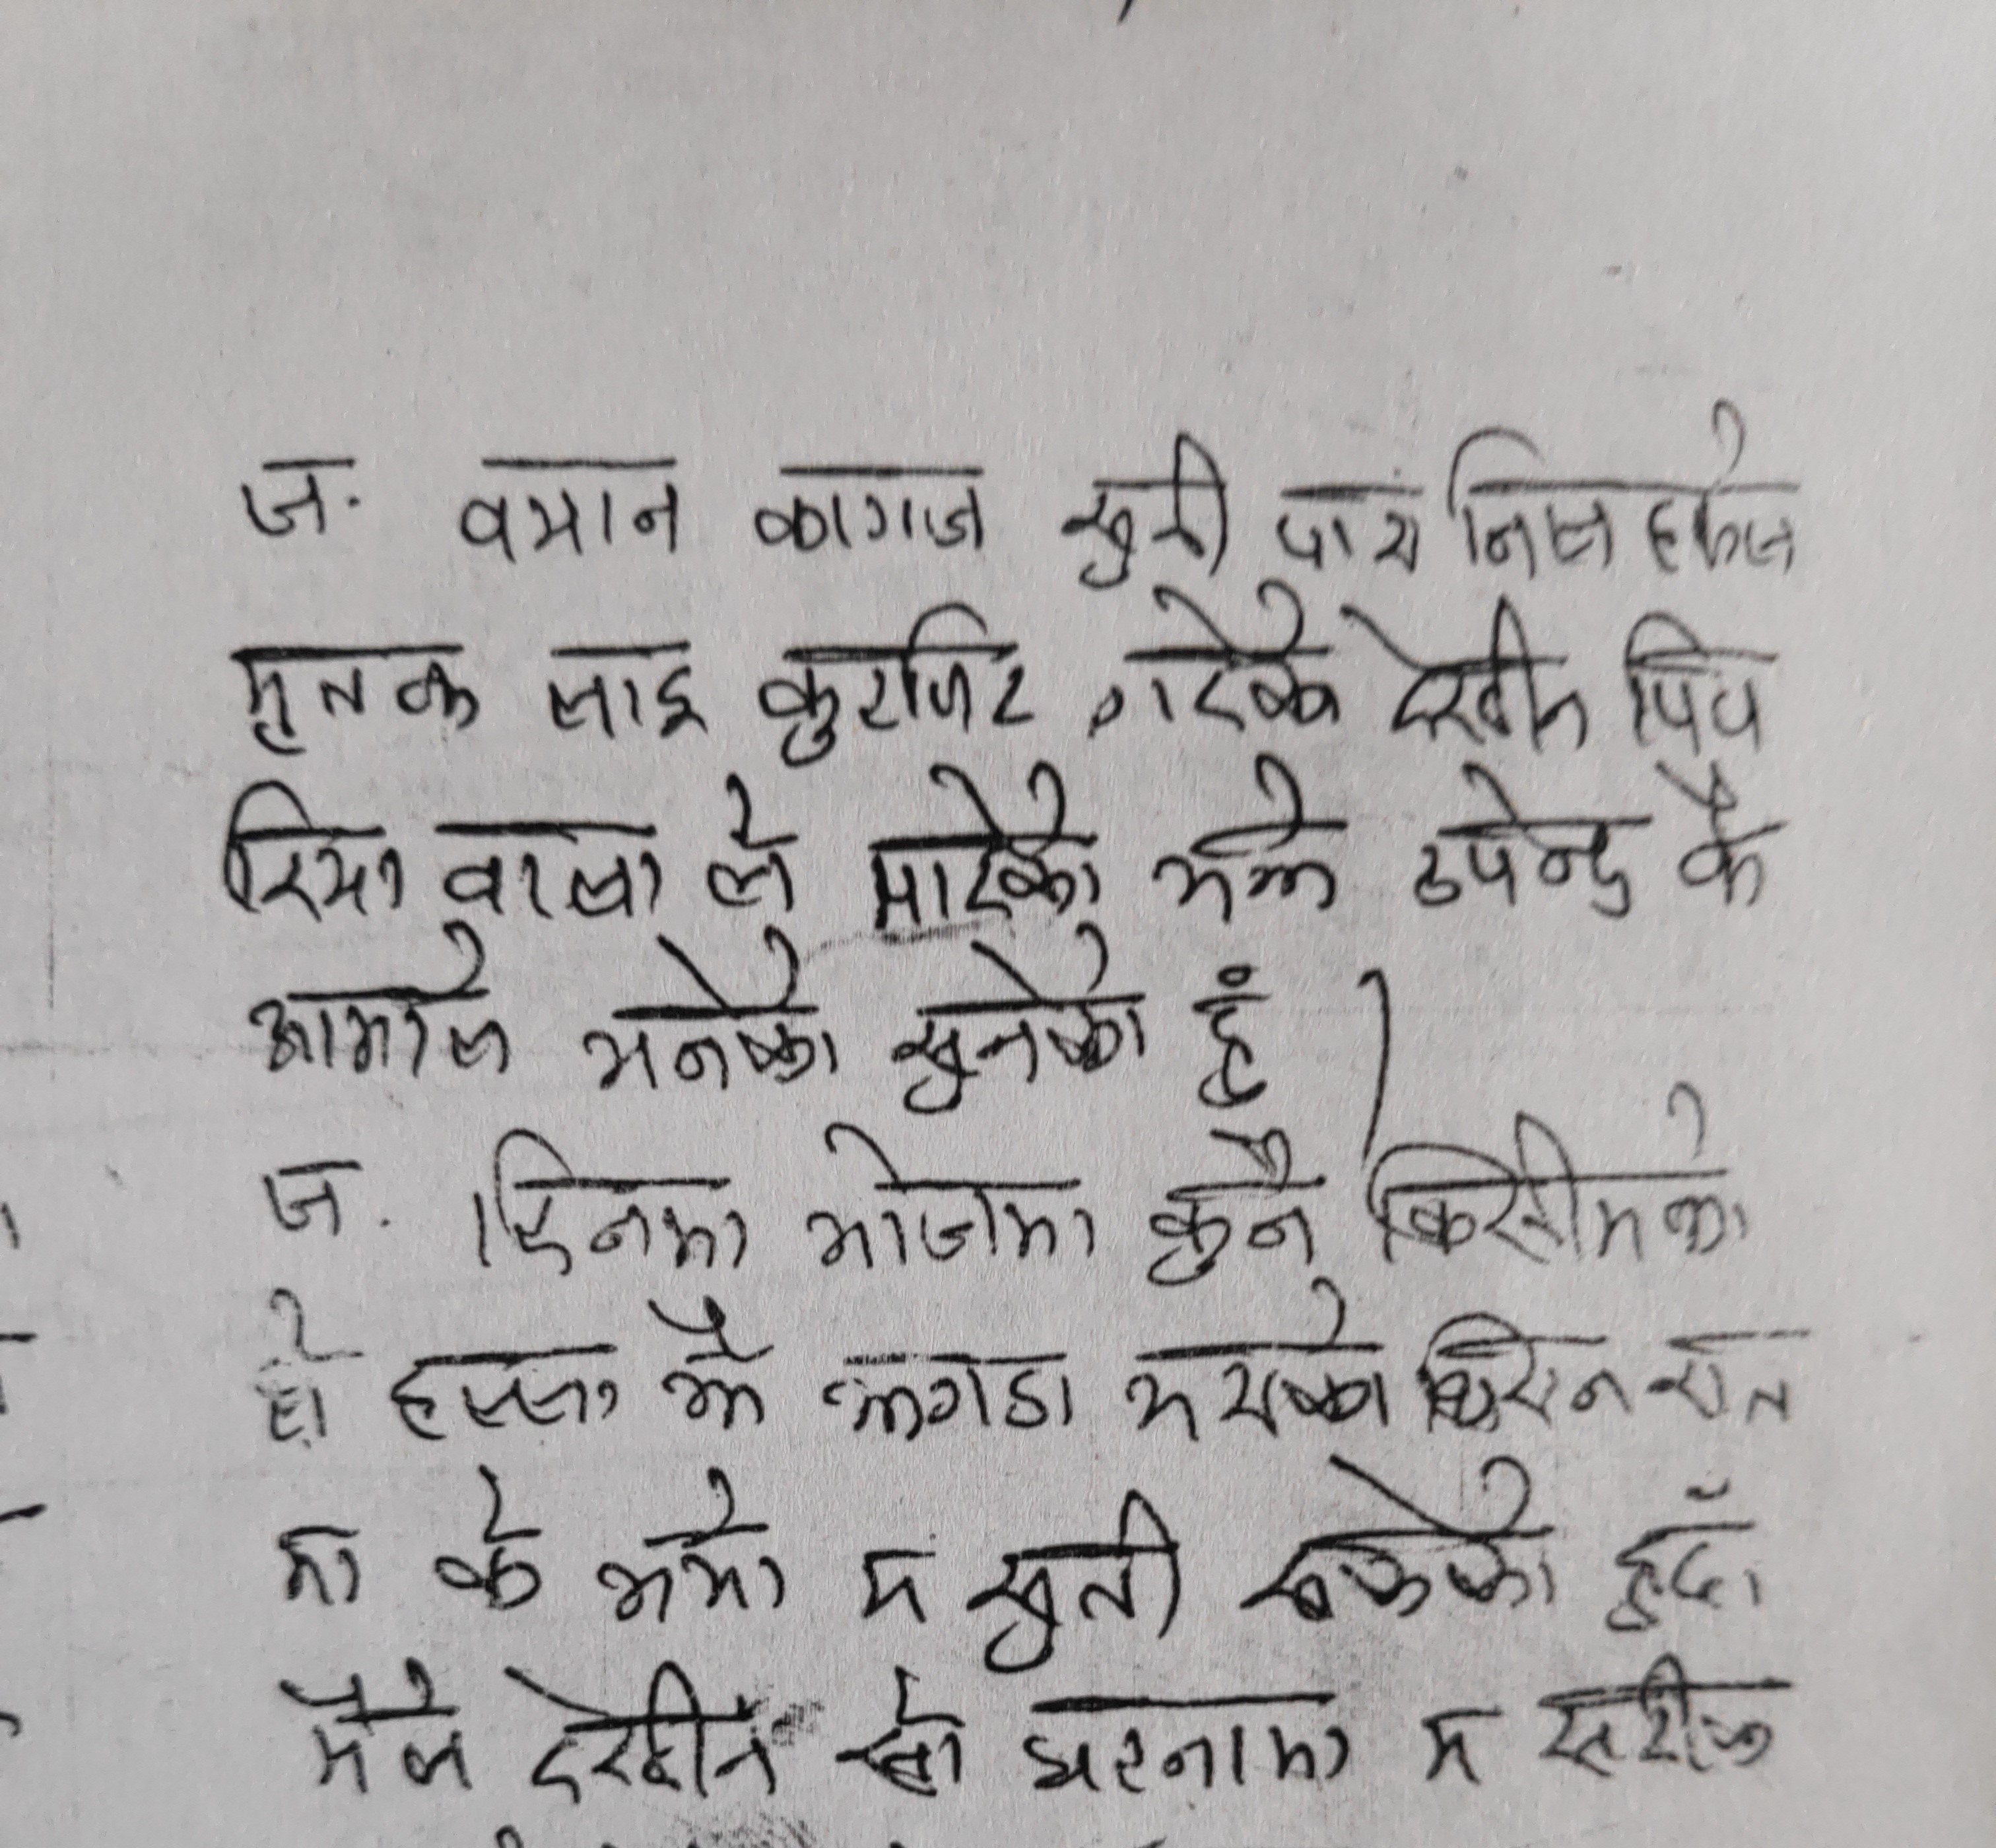 ज. वयान कागज सुनी पाय निज हरुले
मृतक लाइ कुटपिट गरेको देखीन पिप
रिया वाला ले मारेको भन्ने उपेन्द्र कै
आमाले भनेको सुनेको हुं ।
ज. दिनमा भोजमा कुनै किसीमको
हो हल्ला कै झगडा भयको थियन रात
मा के भयो म सुती सकेको हुदाँ
मैले देखीन सो घटनामा म सरीक